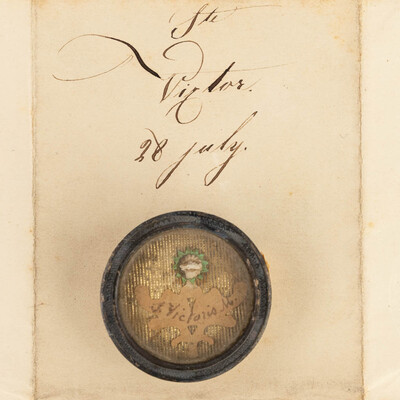 Ste
Victor.
28 july.
S. Victoris M.